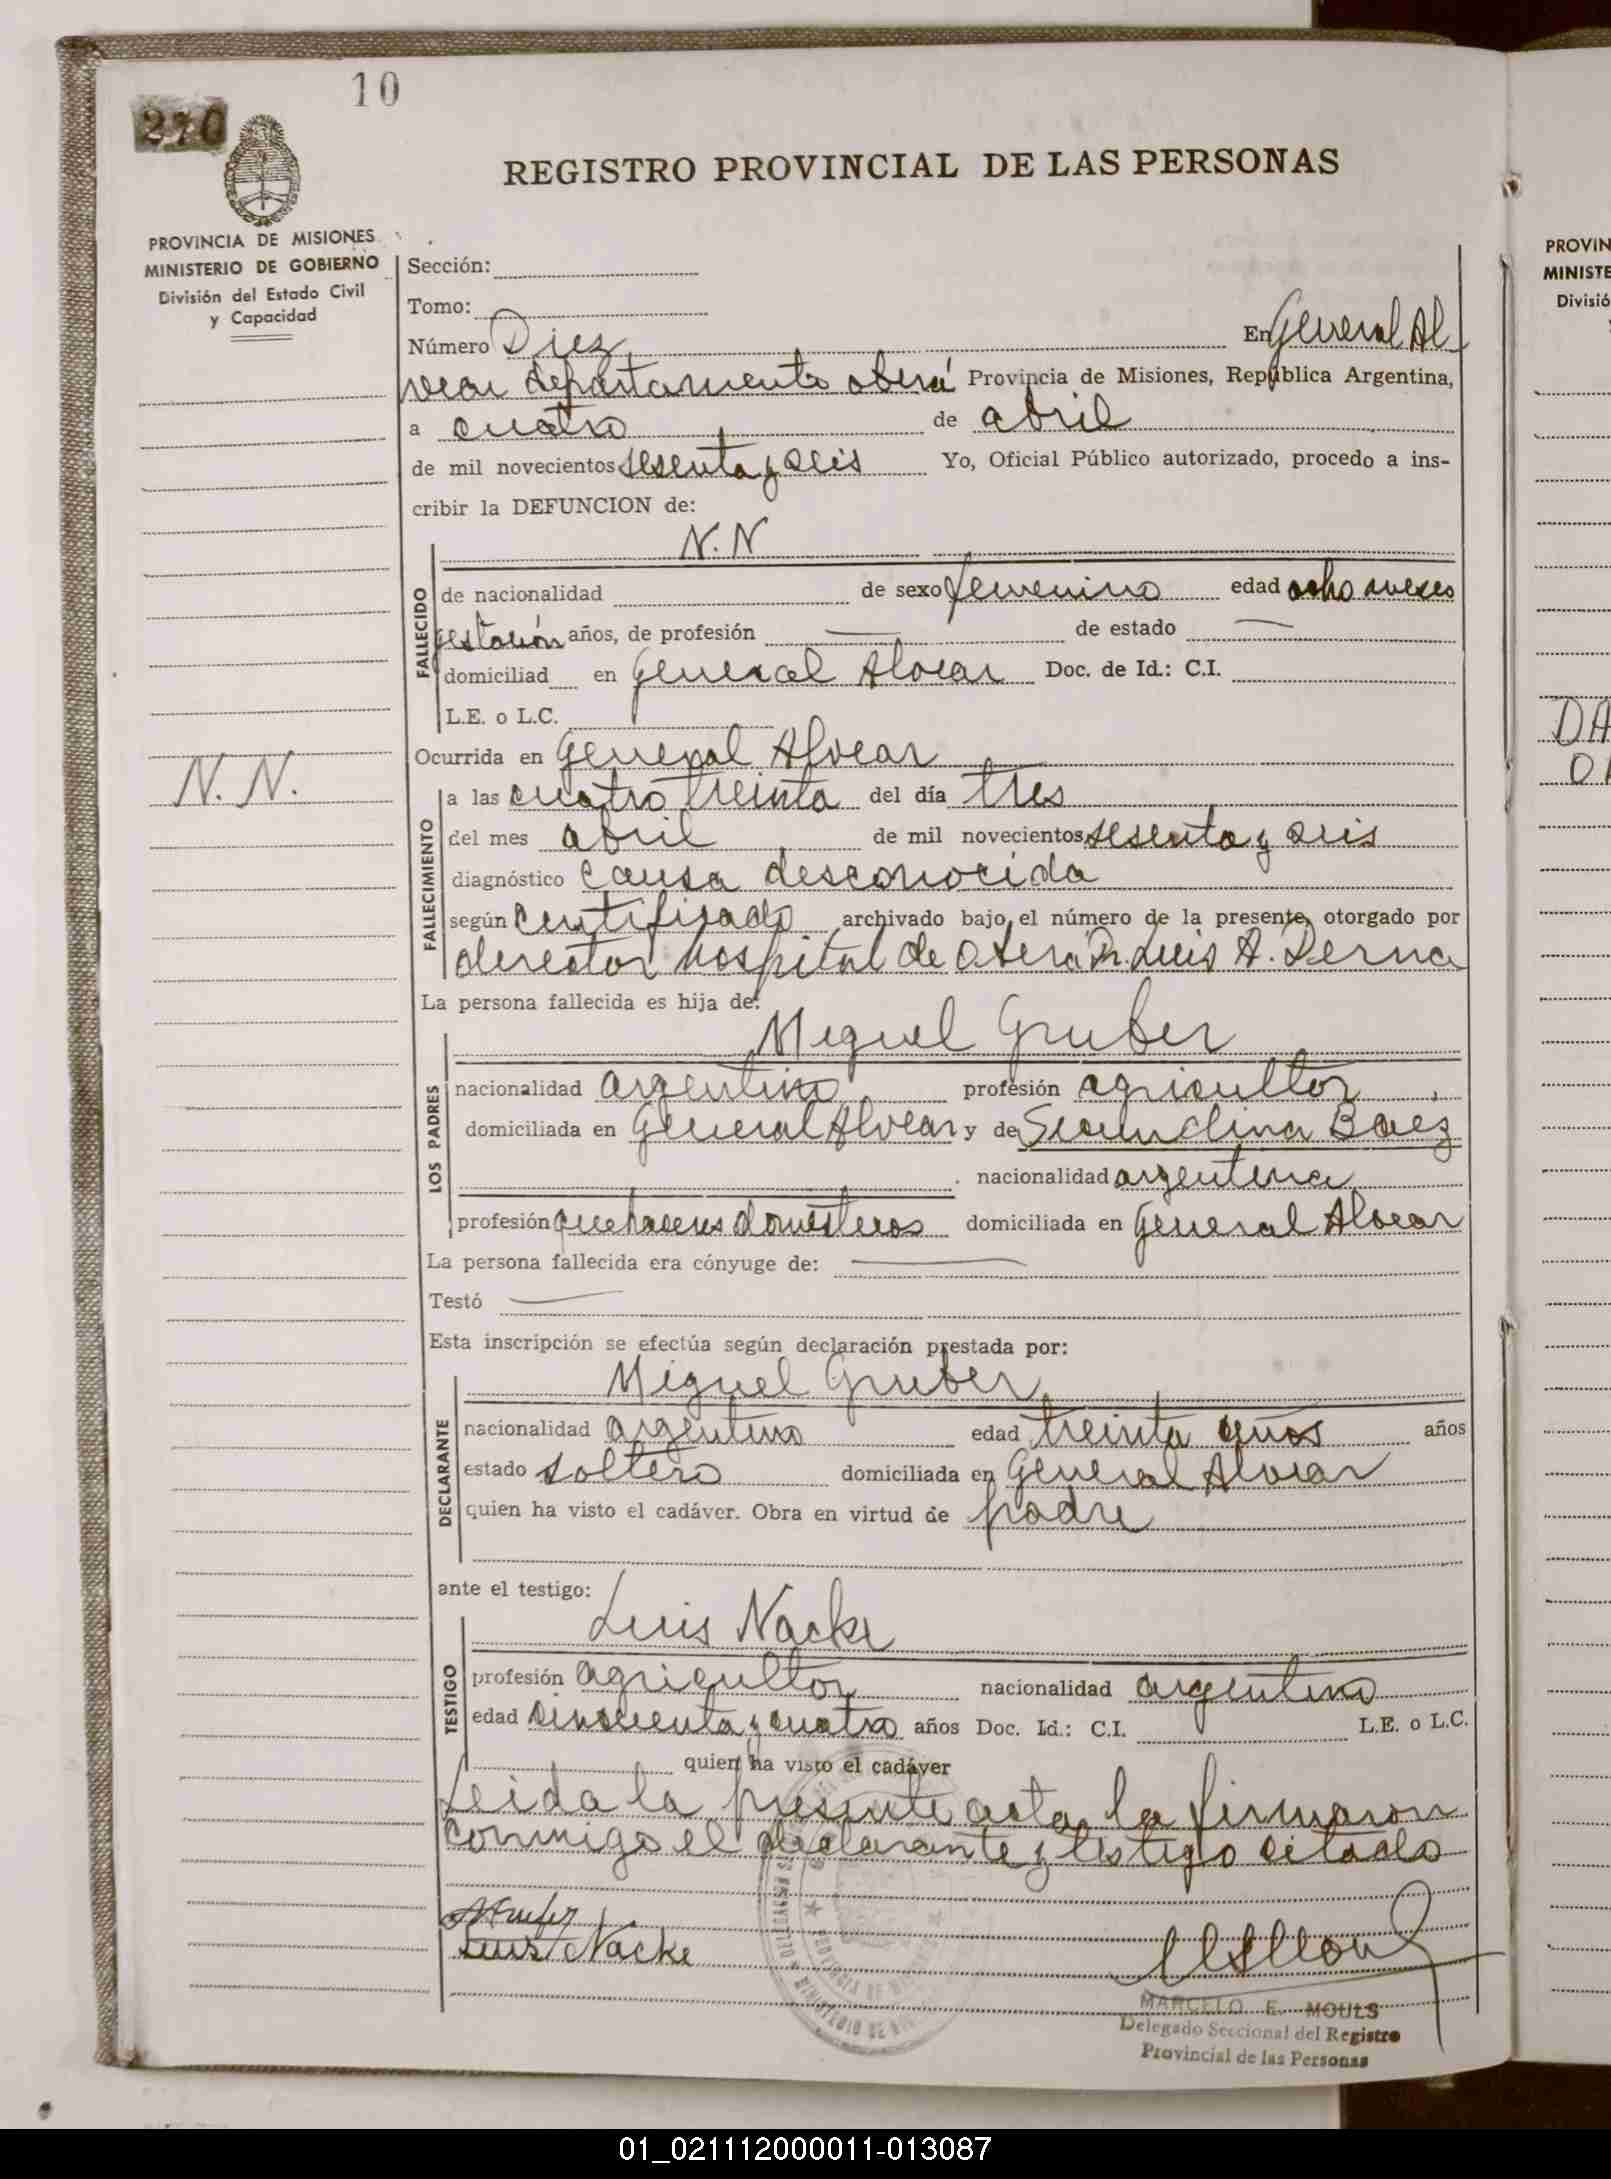 10
270
REGISTRO PROVINCIAL DE LAS PERSONAS
PROVINCIA DE MISIONES
MINISTERIO DE GOBIERNO
División del Estado Civil
y Capacidad
Sección:
Tomo:
Número Diez En General Al
vear departamento oberá Provincia de Misiones, República Argentina,
a cuatro de abril
de mil novecientos sesenta y seis Yo, Oficial Público autorizado, procedo a ins-
cribir la DEFUNCION de:
N.N
FALLECIDO
de nacionalidad de sexo femenino edad ocho meses
gestación años, de profesión — de estado —
domiciliad en General Alvear Doc. de Id.: C.I.
L.E. o L.C.
N. N.
Ocurrida en General Alvear
FALLECIMIENTO
a las cuatro treinta del día tres
del mes abril de mil novecientos sesenta y seis
diagnóstico causa desconocida
según certificado archivado bajo el número de la presente, otorgado por
director hospital de Oberá Dr. Luis A. Derna
La persona fallecida es hija de:
Miguel Gruber
LOS PADRES
nacionalidad argentino profesión agricultor,
domiciliada en General Alvear y de Secundina Baez
nacionalidad argentina
profesión quehaceres domésticos domiciliada en General Alvear
La persona fallecida era cónyuge de: —
Testó —
Esta inscripción se efectúa según declaración prestada por:
Miguel Gruber
DECLARANTE
nacionalidad argentino edad treinta años años
estado soltero domiciliada en General Alvear
quien ha visto el cadáver. Obra en virtud de padre
ante el testigo:
Luis Nacke
TESTIGO
profesión agricultor nacionalidad argentino
edad sinscuenta y cuatro años Doc. Id.: C.I. L.E. o L.C.
quien ha visto el cadáver
Leida la presente acta la firmaron
conmigo el declarante y testigo citado
Luis Nacke
MARCELO E. MOULS
Delegado Seccional del Registro
Provincial de las Personas
PROVIN
MINISTE
Divisió
DA
01_021112000011-013087